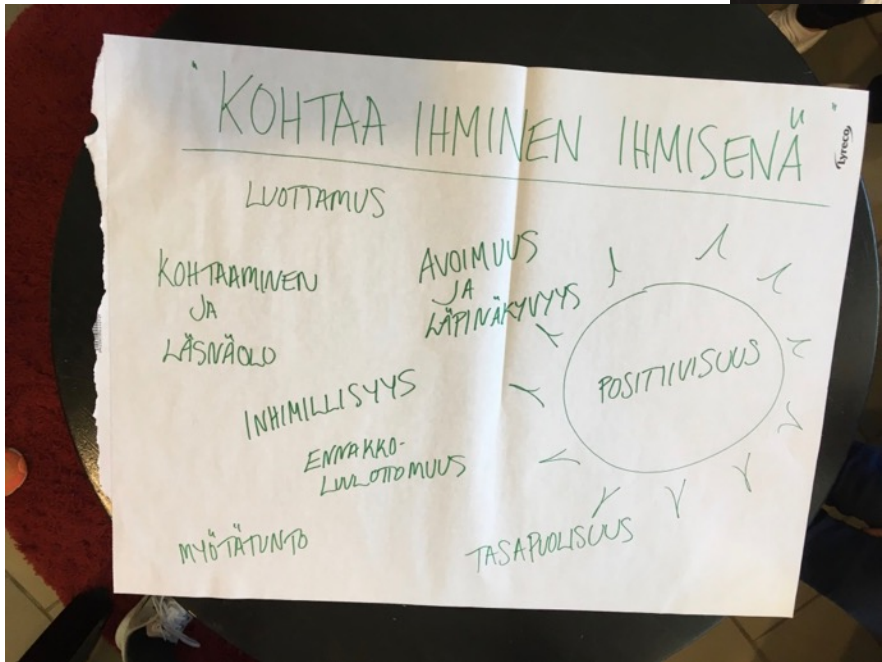 "KOHTAA IHMINEN IHMISENÄ"
lyreco
LUOTTAMUS
KOHTAAMINEN
JA
LÄSNÄOLO
AVOIMUUS
JA
LÄPINÄKYVYYS
POSITIIVISUUS
INHIMILLISYYS
ENNAKKO-
LUULOTTOMUUS
MYÖTÄTUNTO
TASAPUOLISUUS